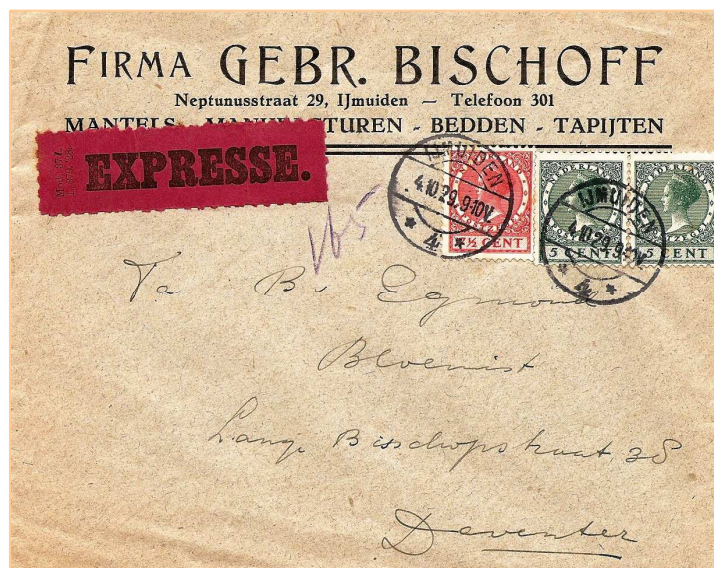 FIRMA GEBR. BISCHOFF
Neptunusstraat 29, IJmuiden — Telefoon 301
MANTELS - MANUFACTUREN - BEDDEN - TAPIJTEN
EXPRESSE.
IJMUIDEN
4.10.29.9-10V.
4
7½ CENT
IJMUIDEN
4.10.29.9-10V.
4
NEDERLAND
5 CENT
NEDERLAND
5 CENT
165
Fa B. Egmond
Bloemist
Lange Bisschopstraat 38
Deventer